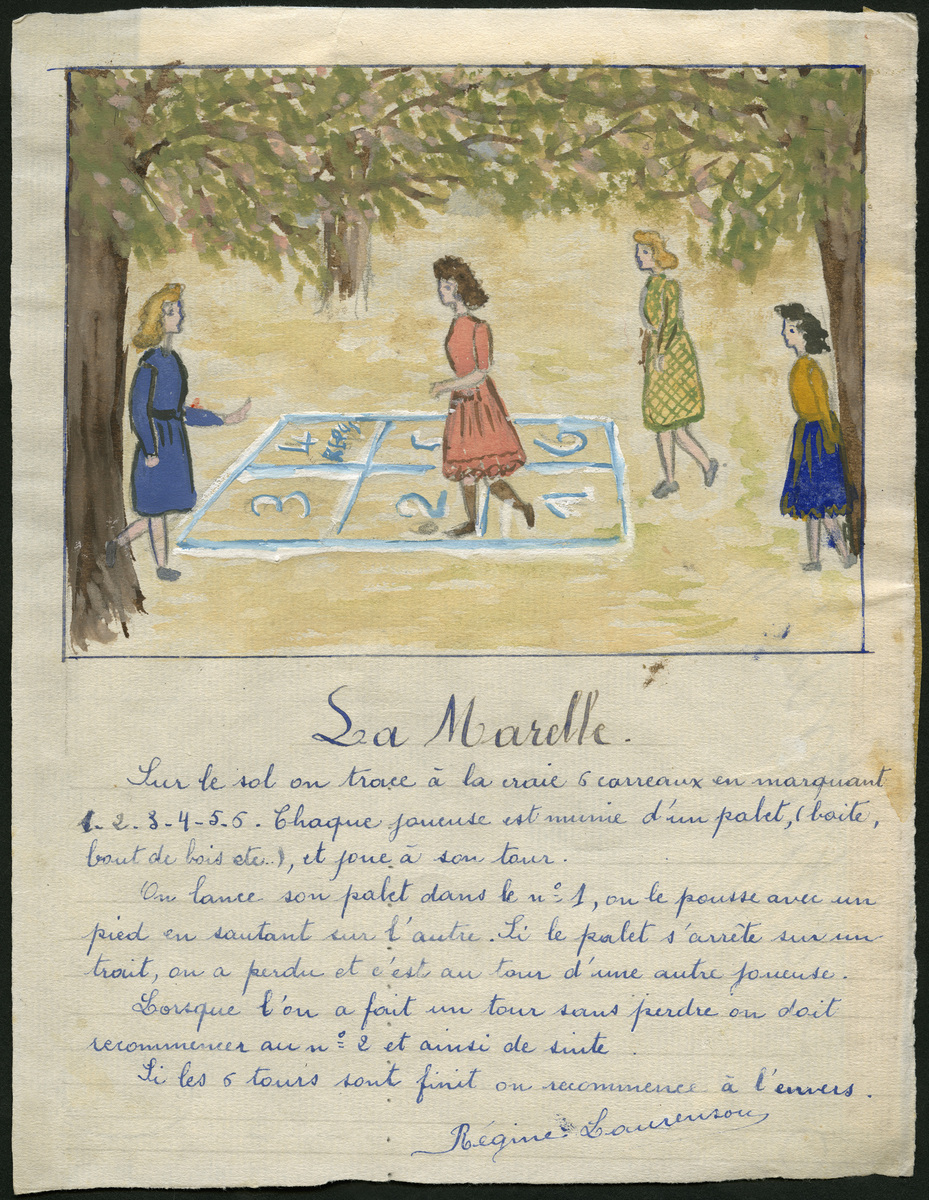 4 5 6
3 2 1
La Marelle.
Sur le sol on trace à la craie 6 carreaux en marquant
1-2-3-4-5-6. Chaque joueuse est munie d'un palet, (boite,
bout de bois etc..), et joue à son tour.
On lance son palet dans le nº 1, on le pousse avec un
pied en sautant sur l'autre. Si le palet s'arrête sur un
trait, on a perdu et c'est au tour d'une autre joueuse.
Lorsque l'on a fait un tour sans perdre on doit
recommencer au nº 2 et ainsi de suite.
Si les 6 tours sont finit on recommence à l'envers.
Régine Laurenson